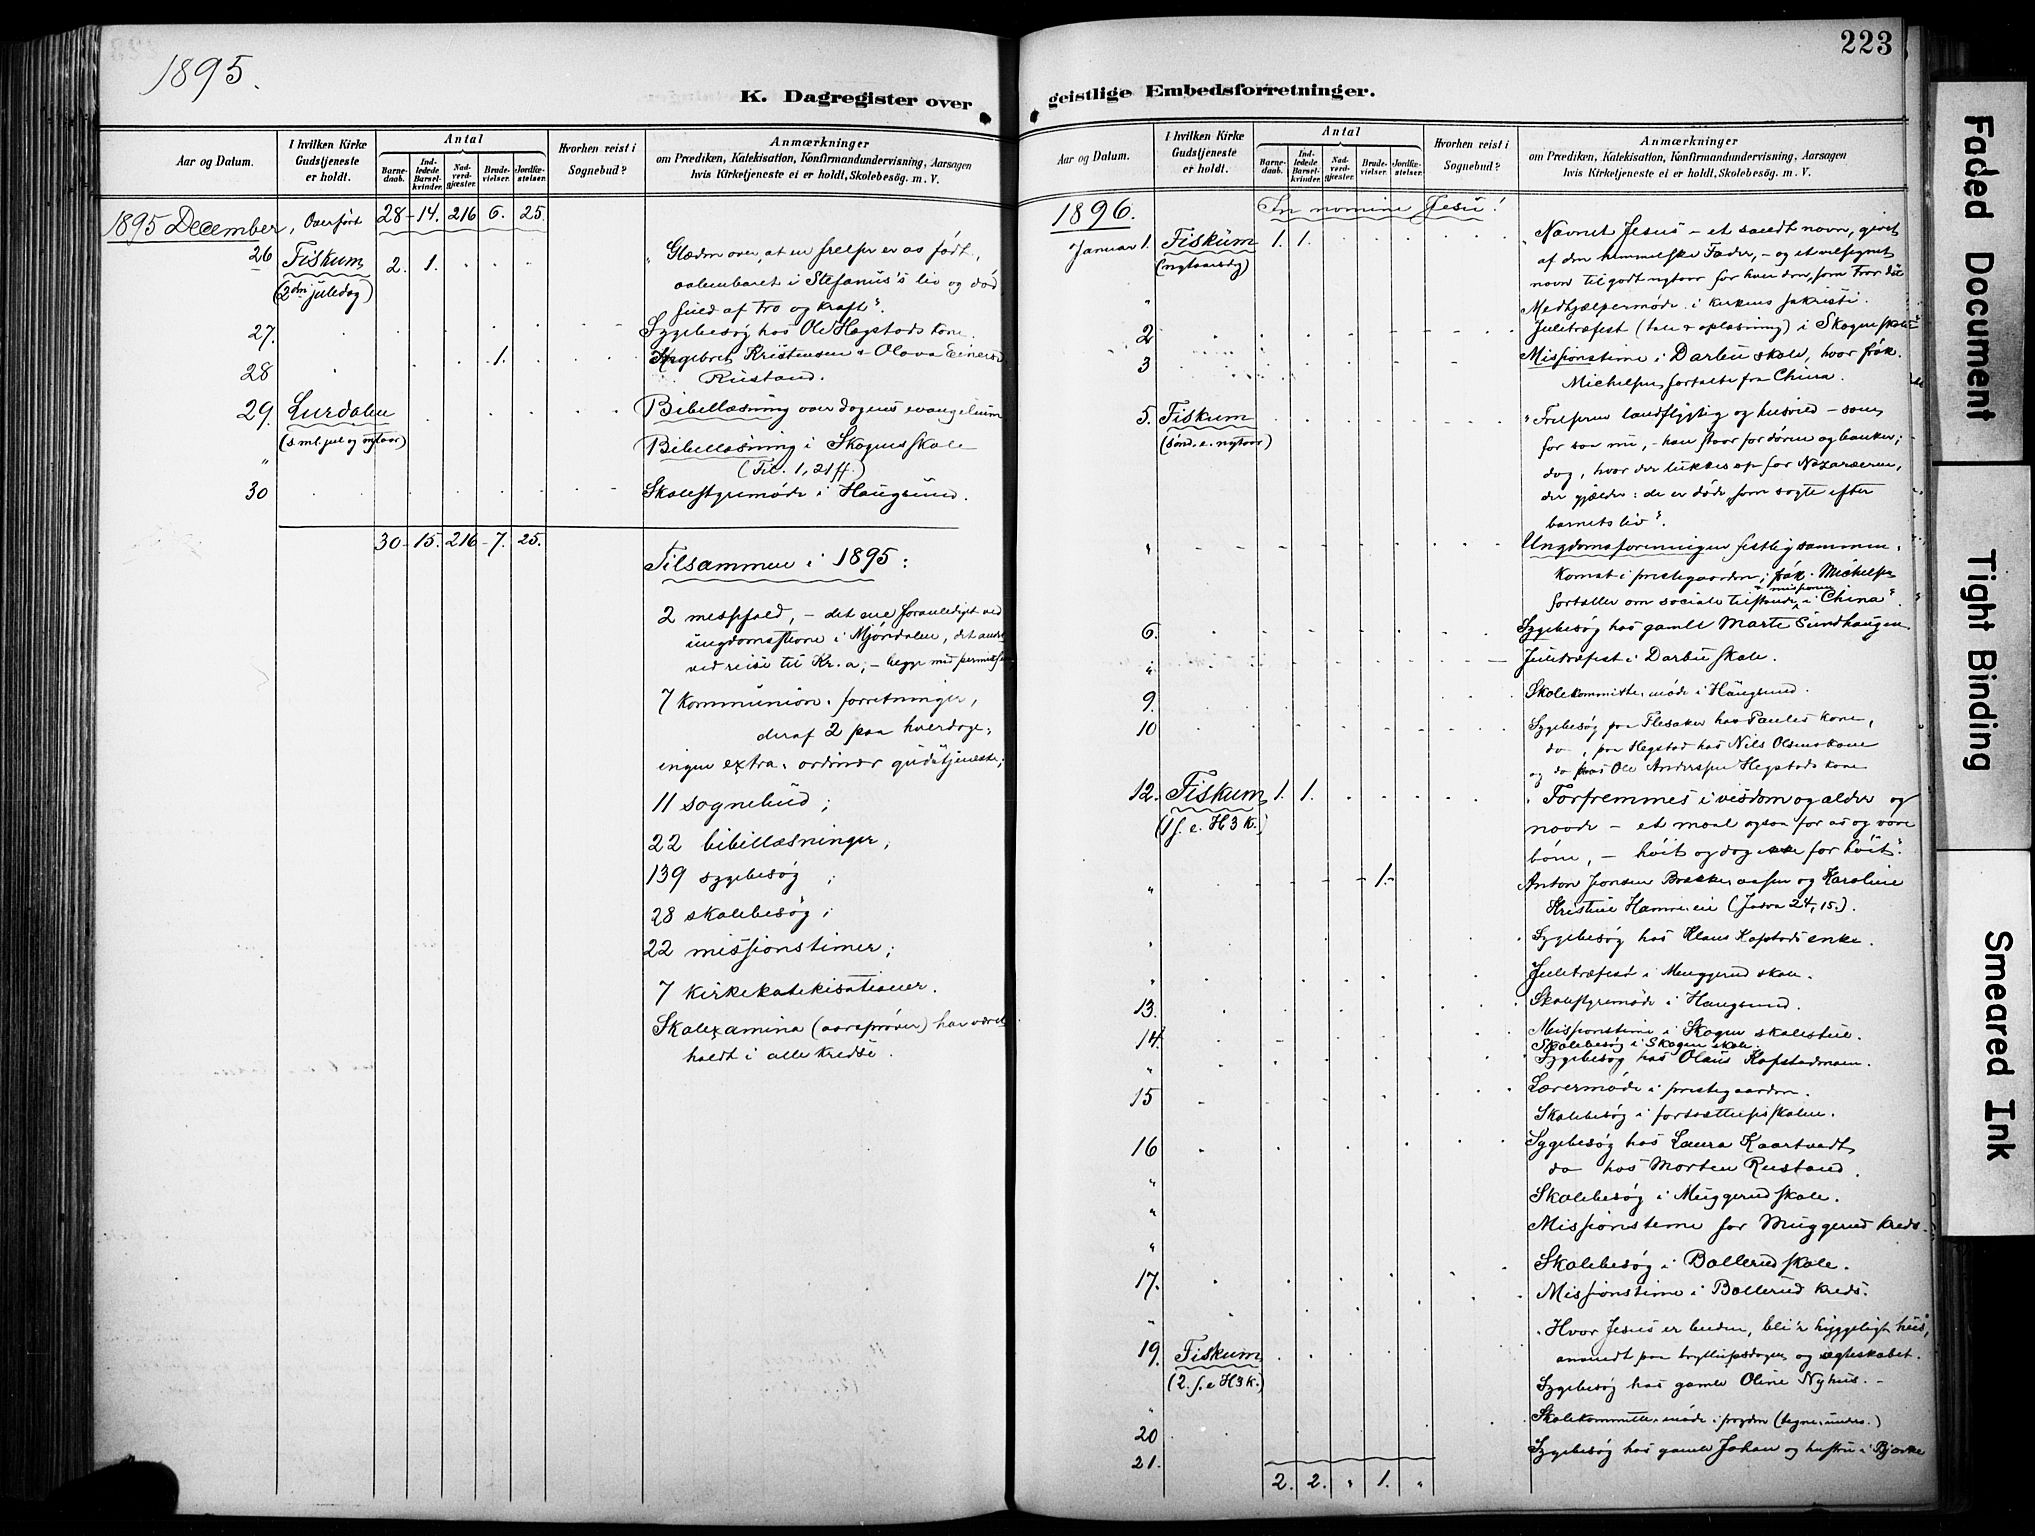 1895.
K. Dagregister over
Aar og Datum.
I hvilken Kirke Gudstjeneste er holdt.
Antal
Barne- daab.
Ind- ledede Barsel- kvinder.
Nad- verd- gjæster.
Brude- vielser.
Jordfæ- stelser.
Hvorhen reist i Sognebud?
Anmærkninger
om Prædiken, Katekisation, Konfirmandundervisning, Aarsagen
hvis Kirketjeneste ei er holdt, Skolebesøg. m. V.
1895 December, Overført 28 - 14. 216 6. 25.
26 Fiskum 2. 1. „Glæden over, at en frelser er os født,
(2den juledag) aabenbaret i Stefanus's liv og død
fuld af tro og kraft“.
27. Sygebesøg hos Ole Hegstads kone
28 1. Ingebret Kristensen & Olava
Rustand.
29. Lurdalen Bibellæsning over dagens evangelium
(s. ml. jul og nytaar) Bibellæsning i Skogens skole
„ (Fil. 1, 21 ff.)
30 Skolestyremøde i Haugsund.
30 - 15. 216 - 7. 25.
Tilsammen i 1895:
2 messfald, - det ene foranlediget ved
ungdomsstevne i Mjöndalen, det andet
ved reise til Kr.a; - begge med
7 kommunion-forretninger,
deraf 2 paa hverdage;
ingen extra-ordinær gudstjeneste;
11 sognebud;
22 bibellæsninger;
139 sygebesøg;
28 skolebesøg;
22 missionstimer;
7 kirkekatekisationer.
Skolexamina (aarsprøver) har været
holdt i alle kredse.
223
geistlige Embedsforretninger.
Aar og Datum.
I hvilken Kirke Gudstjeneste er holdt.
Antal
Barne- daab.
Ind- ledede Barsel- kvinder.
Nad- verd- gjæster.
Brude- vielser.
Jordfæ- stelser.
Hvorhen reist i Sognebud?
Anmærkninger
om Prædiken, Katekisation, Konfirmandundervisning, Aarsagen
hvis Kirketjeneste ei er holdt, Skolebesøg. m. V.
1896. In nomine Jesu!
Januar 1. Fiskum 1. 1. „Navnet Jesus - et navn, givet
(nytaarsdag) af den himmelske Fader, - og et velsignet
navn til godt nytaar for hver den, som tror det
„ Medhjælpermøde i kirkens sakristi.
2 Juletræfest (tale & oplæsning) i Skogen skole
3 Missionstime i Darbu skole, hvor frøk.
Michelsen fortalte fra China.
5. Fiskum „Frelseren landflygtig og husvild - som
(sønd. e. nytaar) før saa nu, - han staar for døren og banker;
dog, hvor der lukkes op for Nazaræeren,
der gjælder: de er døde, som søgte efter
barnets liv“.
„ Ungdomsforeningen festlig sammen-
komst i prestegaarden; frøk. Michelsen
fortæller om sociale tilstande & missionen i China“.
6. Sygebesøg hos gamle Marte Sundhaugen
„ Juletræfest i Darbu skole.
9. Skolekommitte-møde i Haugsund.
10 Sygebesøg paa Flesaker hos Paules kone,
do, paa Hegstad hos Nils Olsens kone
og do hos Ole Andersen Hegstads kone
12. Fiskum 1. 1. „Forfremmes i visdom og alder og
(1 s. e. H 3 K.) naade - et maal ogsaa for os og vore
børn, - høit og dog ikke for høit“.
„ 1. Anton Jonsen Bakkeraasen og Karoline
Kristine Hammereie (Josva 24, 15.).
„ Sygebesøg hos Klaus Kopstads enke.
„ Juletræfest i Muggerud skole.
13. Skolestyremøde i Haugsund.
14. Missionstime i Skogen skolestue.
Skolebesøg i Skogen skole.
„ Sygebesøg hos Olaus Kopstadmoen.
15 Lærermøde i prestegaarden.
Skolebesøg i fortsættelsesskolen.
16 Sygebesøg hos Laura Kaartvedt
do hos Morten Rustand.
„ Skolebesøg i Muggerud skole.
„ Missionstime for Muggerud kreds.
„ Skolebesøg i Bollerud skole.
17. Missionstime i Bollerud kreds.
„
19. Fiskum „Hvor Jesus er buden, bli'r hyggeligt hus,
(2. s. e H 3 K.) anvendt paa bryllupsdagen og ægteskabet.
Sygebesøg hos gamle Oline Nyhus. -
„
20 Skolekommitte-møde i (tegne-underv.)
21. Sygebesøg hos gamle Johan og hustru i Bjerke
2. 2. „ 1. „
Faded Document
Tight Binding
Smeared Ink